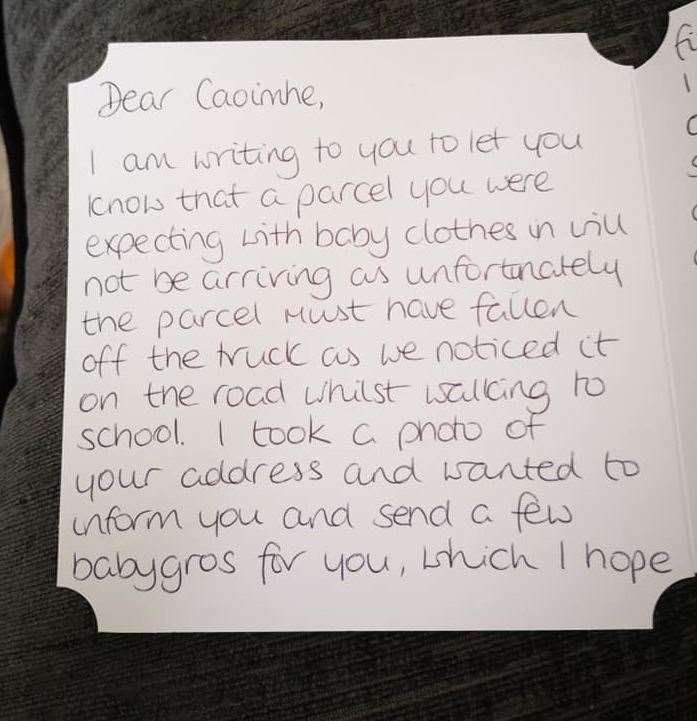 Dear Caoimhe,
I am writing to you to let you
know that a parcel you were
expecting with baby clothes in will
not be arriving as unfortunately
the parcel must have fallen
off the truck as we noticed it
on the road whilst walking to
school. I took a photo of
your address and wanted to
inform you and send a few
babygros for you, which I hope